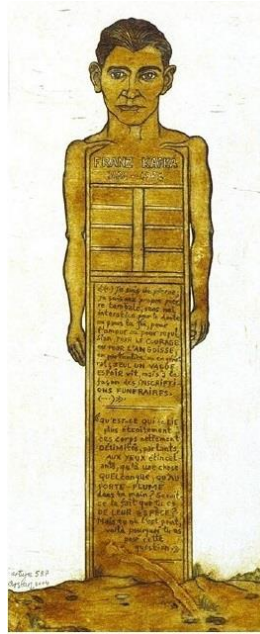 FRANZ KAFKA
«(...) Je suis une pierre,
je suis ma propre pier
re tombale, sans nul
interstice pour le doute
ou pour la foi, pour
l'amour ou pour repul
sion pour le COURAGE
ou pour L'ANGOISSE,
en particulier ou en géné
ral, SEUL UN VAGUE
ESPOIR vit, mais à la
façon des INSCRIPTI
ONS FUNERAIRES.
(...)»
qu'est-ce qui te lie
plus étroitement à
ces corps nettement
DÉLIMITÉS, parlants,
AUX YEUX étincel
ants, qu'à une chose
QUELCONQUE, qu'AU
PORTE-PLUME
dans ta main? Serait
ce le fait que tu es
DE LEUR ESPÈCE?
Mais tu n'es pas
voilà pourquoi tu as
posé cette
question